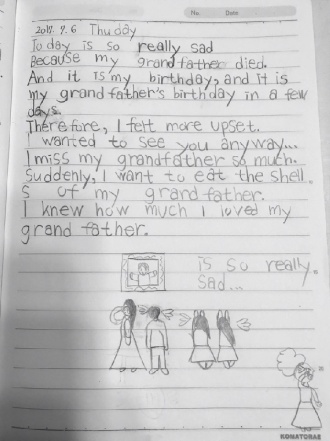 No. Date
2018. 9. 6 Thuday
Today is so really sad
Because my grandfather died.
And it is my birthday, and it is
my grandfather's birthday in a few
days.
Therefore, I felt more upset.
I wanted to see you anyway...
I miss my grandfather so much.
Suddenly, I want to eat the shell
s of my grandfather.
I knew how much I loved my
grand father.
is so really
sad...
KONATORAE